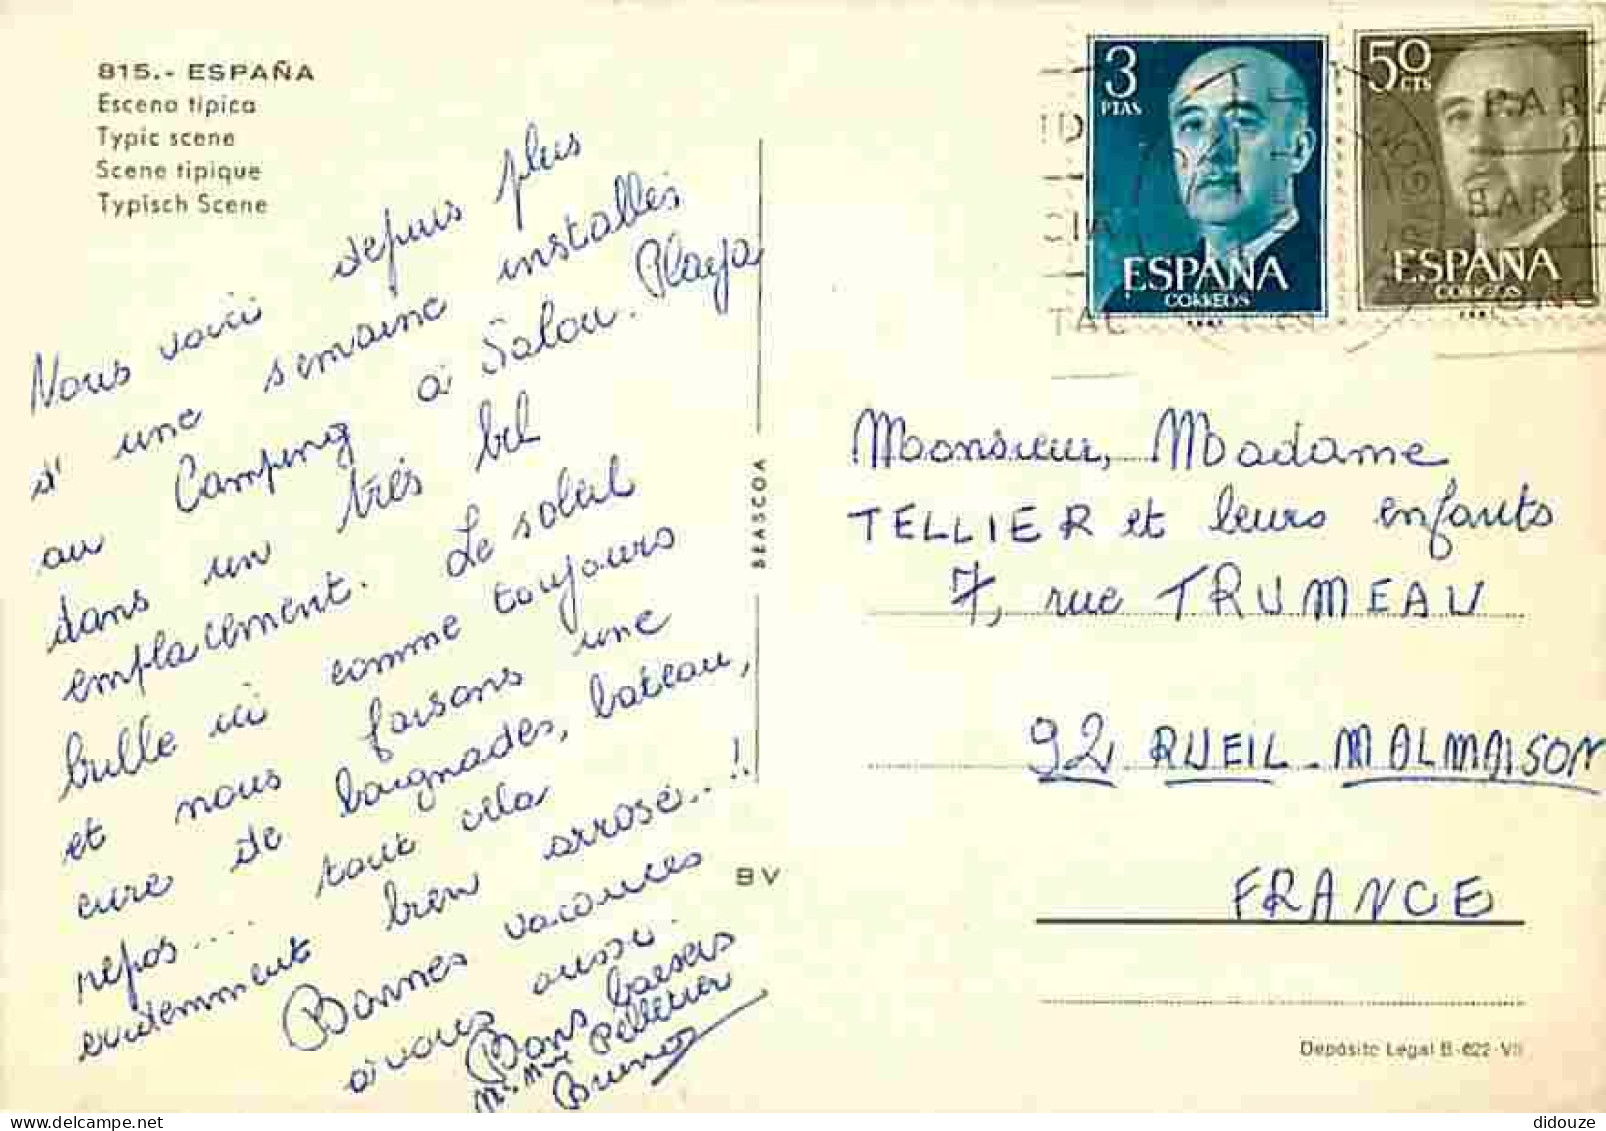 815.- ESPAÑA
Escena tipica
Typic scene
Scene tipique
Typisch Scene
Nous voici depuis plus
d'une semaine installés
au Camping à Salou. Playa
dans un très bel
emplacement. Le soleil
brille ici comme toujours
et nous faisons une
cure de baignades, bateau,
repos.... tout cela
evidemment bien arrosé...!
Bonnes vacances
à vous aussi.
Bons baisers
Mr. Mme Pelletier
Bruno
BEASCOA
BV
3
PTAS
ESPAÑA
CORREOS
50
CTS
ESPAÑA
CORREOS
PARA
BARCE
TAL
Monsieur, Madame
TELLIER et leurs enfants
7, rue TRUMEAU
92 RUEIL-MALMAISON
FRANCE
Depósito Legal B-622-VII
didouze